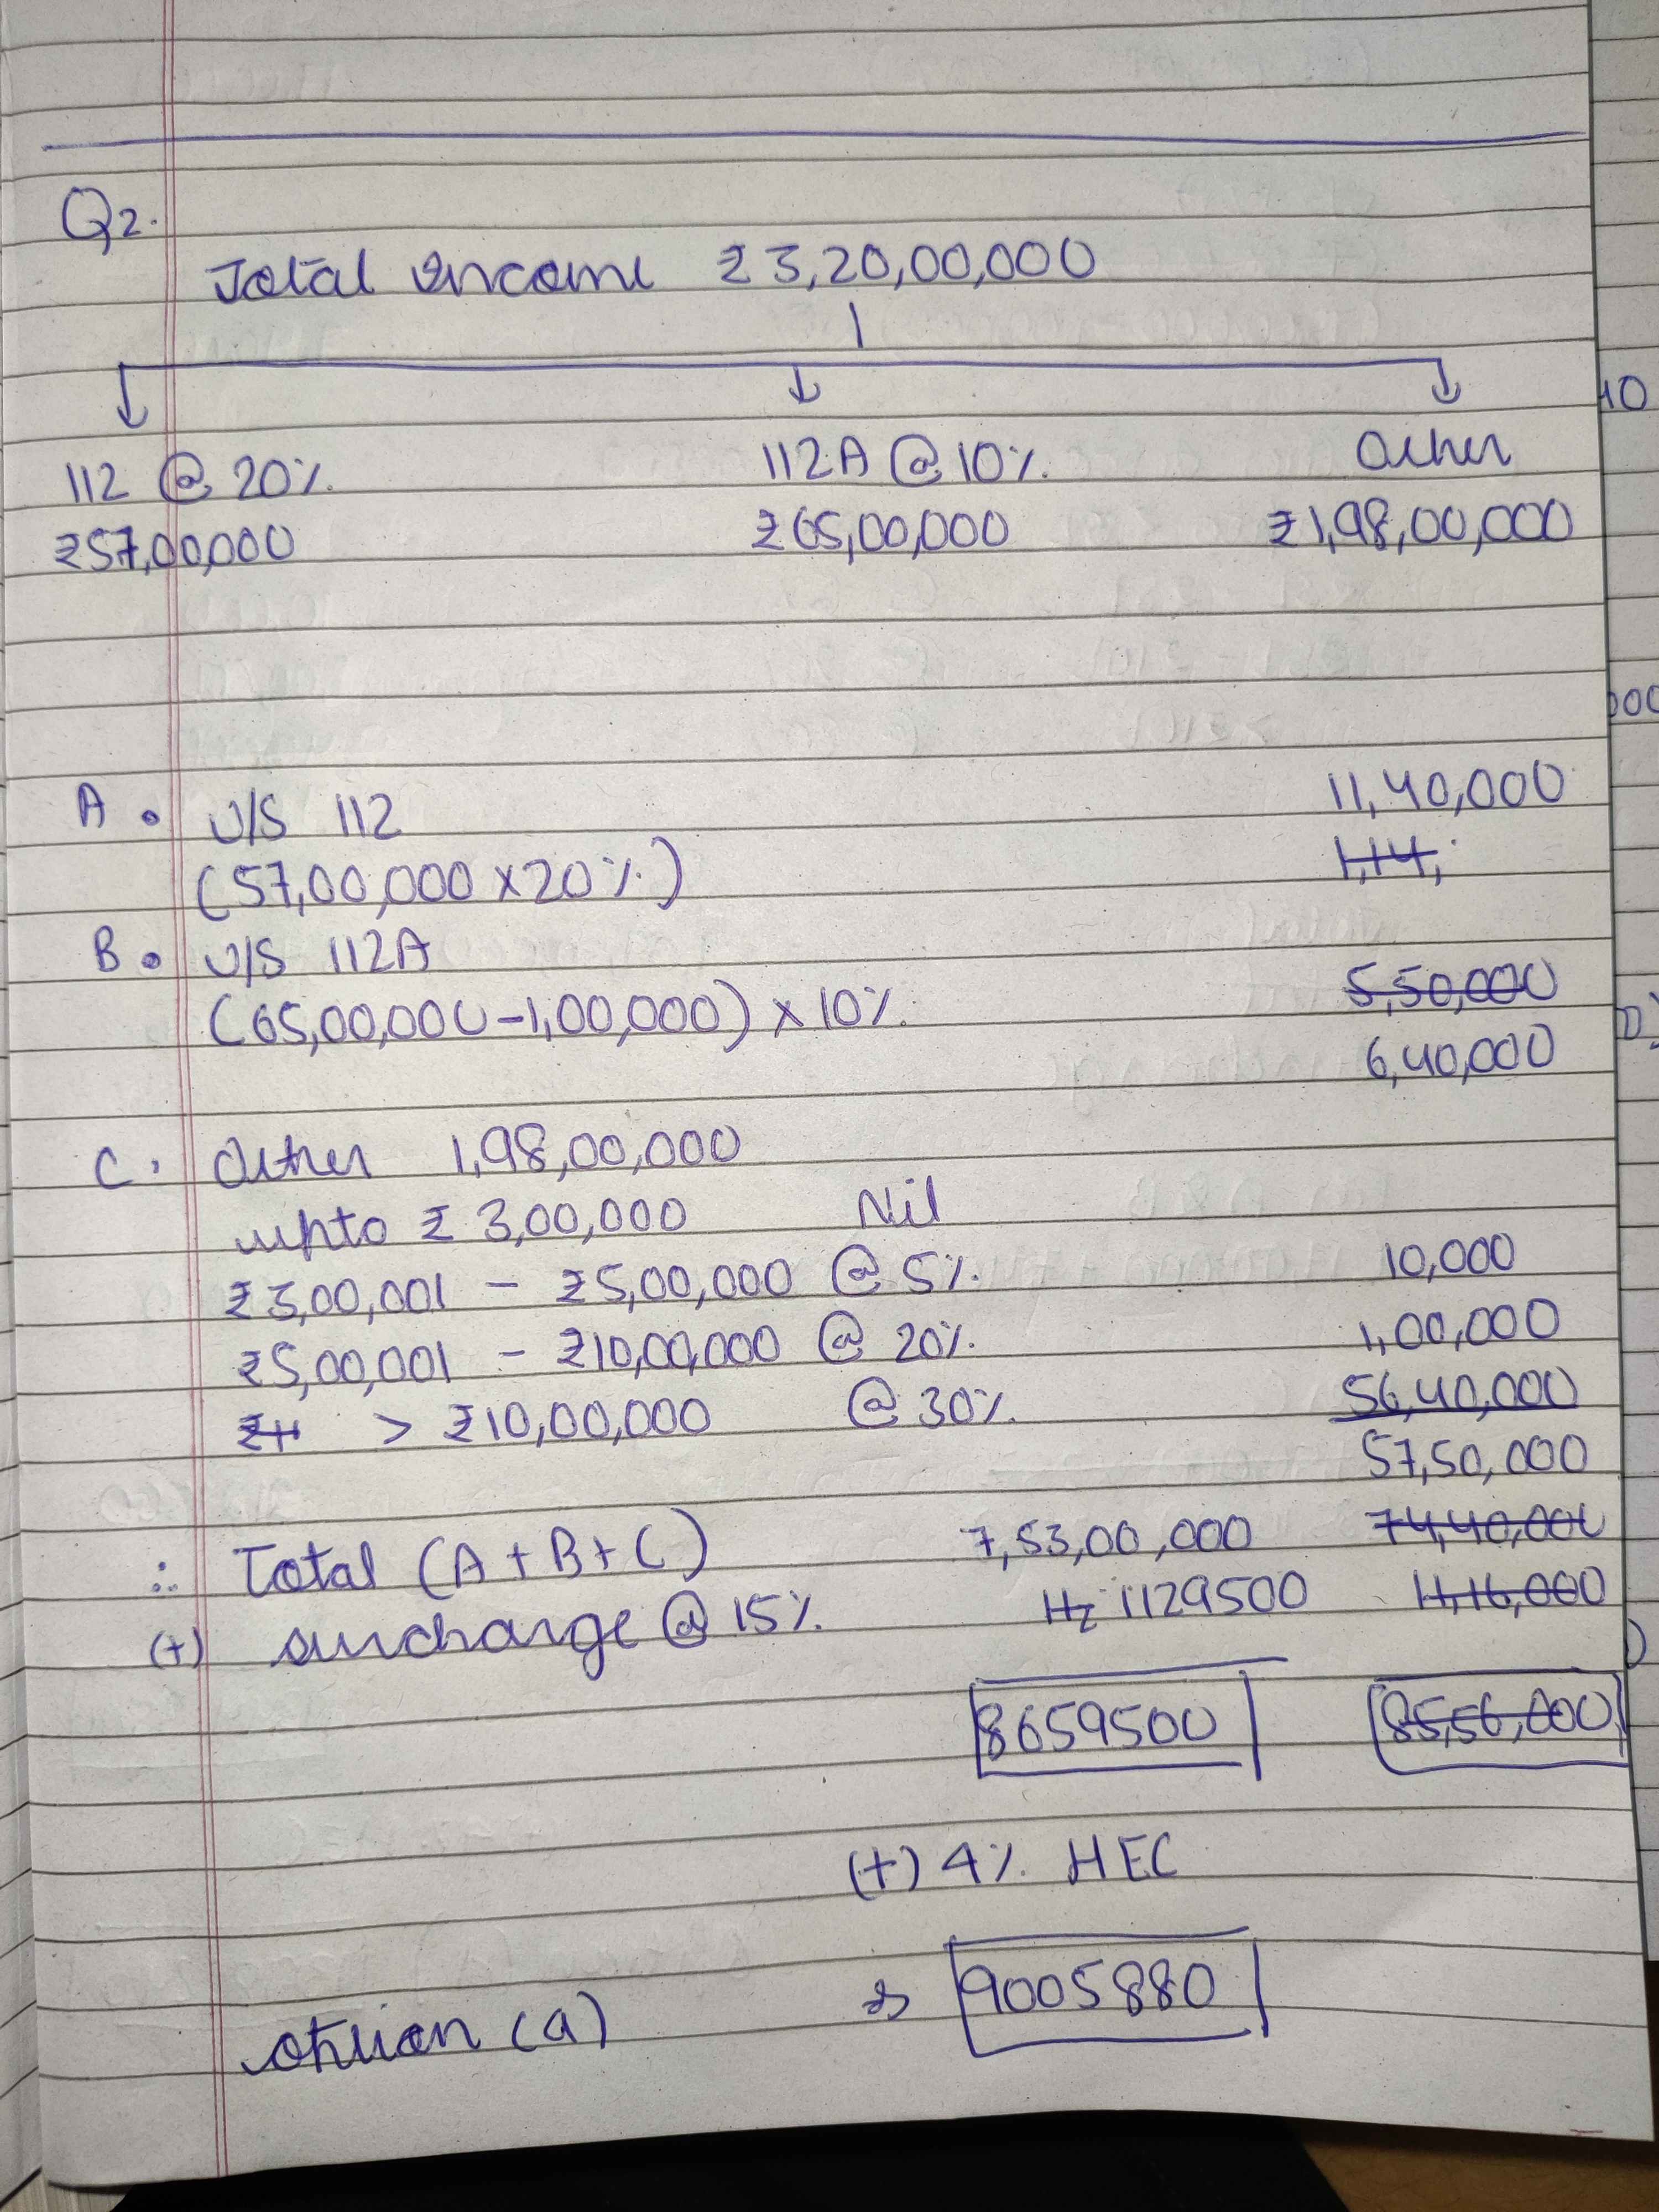 Q2.
Total income ₹3,20,00,000
112 @ 20% 112A @ 10% Other
₹57,00,000 ₹65,00,000 ₹1,98,00,000
A. U/S 112 11,40,000
(57,00,000 x 20%) 1,14,
B. U/S 112A
(65,00,000 - 1,00,000) x 10% 5,50,000
6,40,000
C. Other 1,98,00,000
upto ₹ 3,00,000 Nil
₹3,00,001 - ₹5,00,000 @ 5% 10,000
₹5,00,001 - ₹10,00,000 @ 20% 1,00,000
> ₹10,00,000 @ 30% 56,40,000
57,50,000
∴ Total (A + B + C) 7,53,00,000 74,40,000
(+) surcharge @ 15% 1129500 11,16,000
8659500 85,56,000
(+) 4% HEC
option (a) ⇒ 9005880